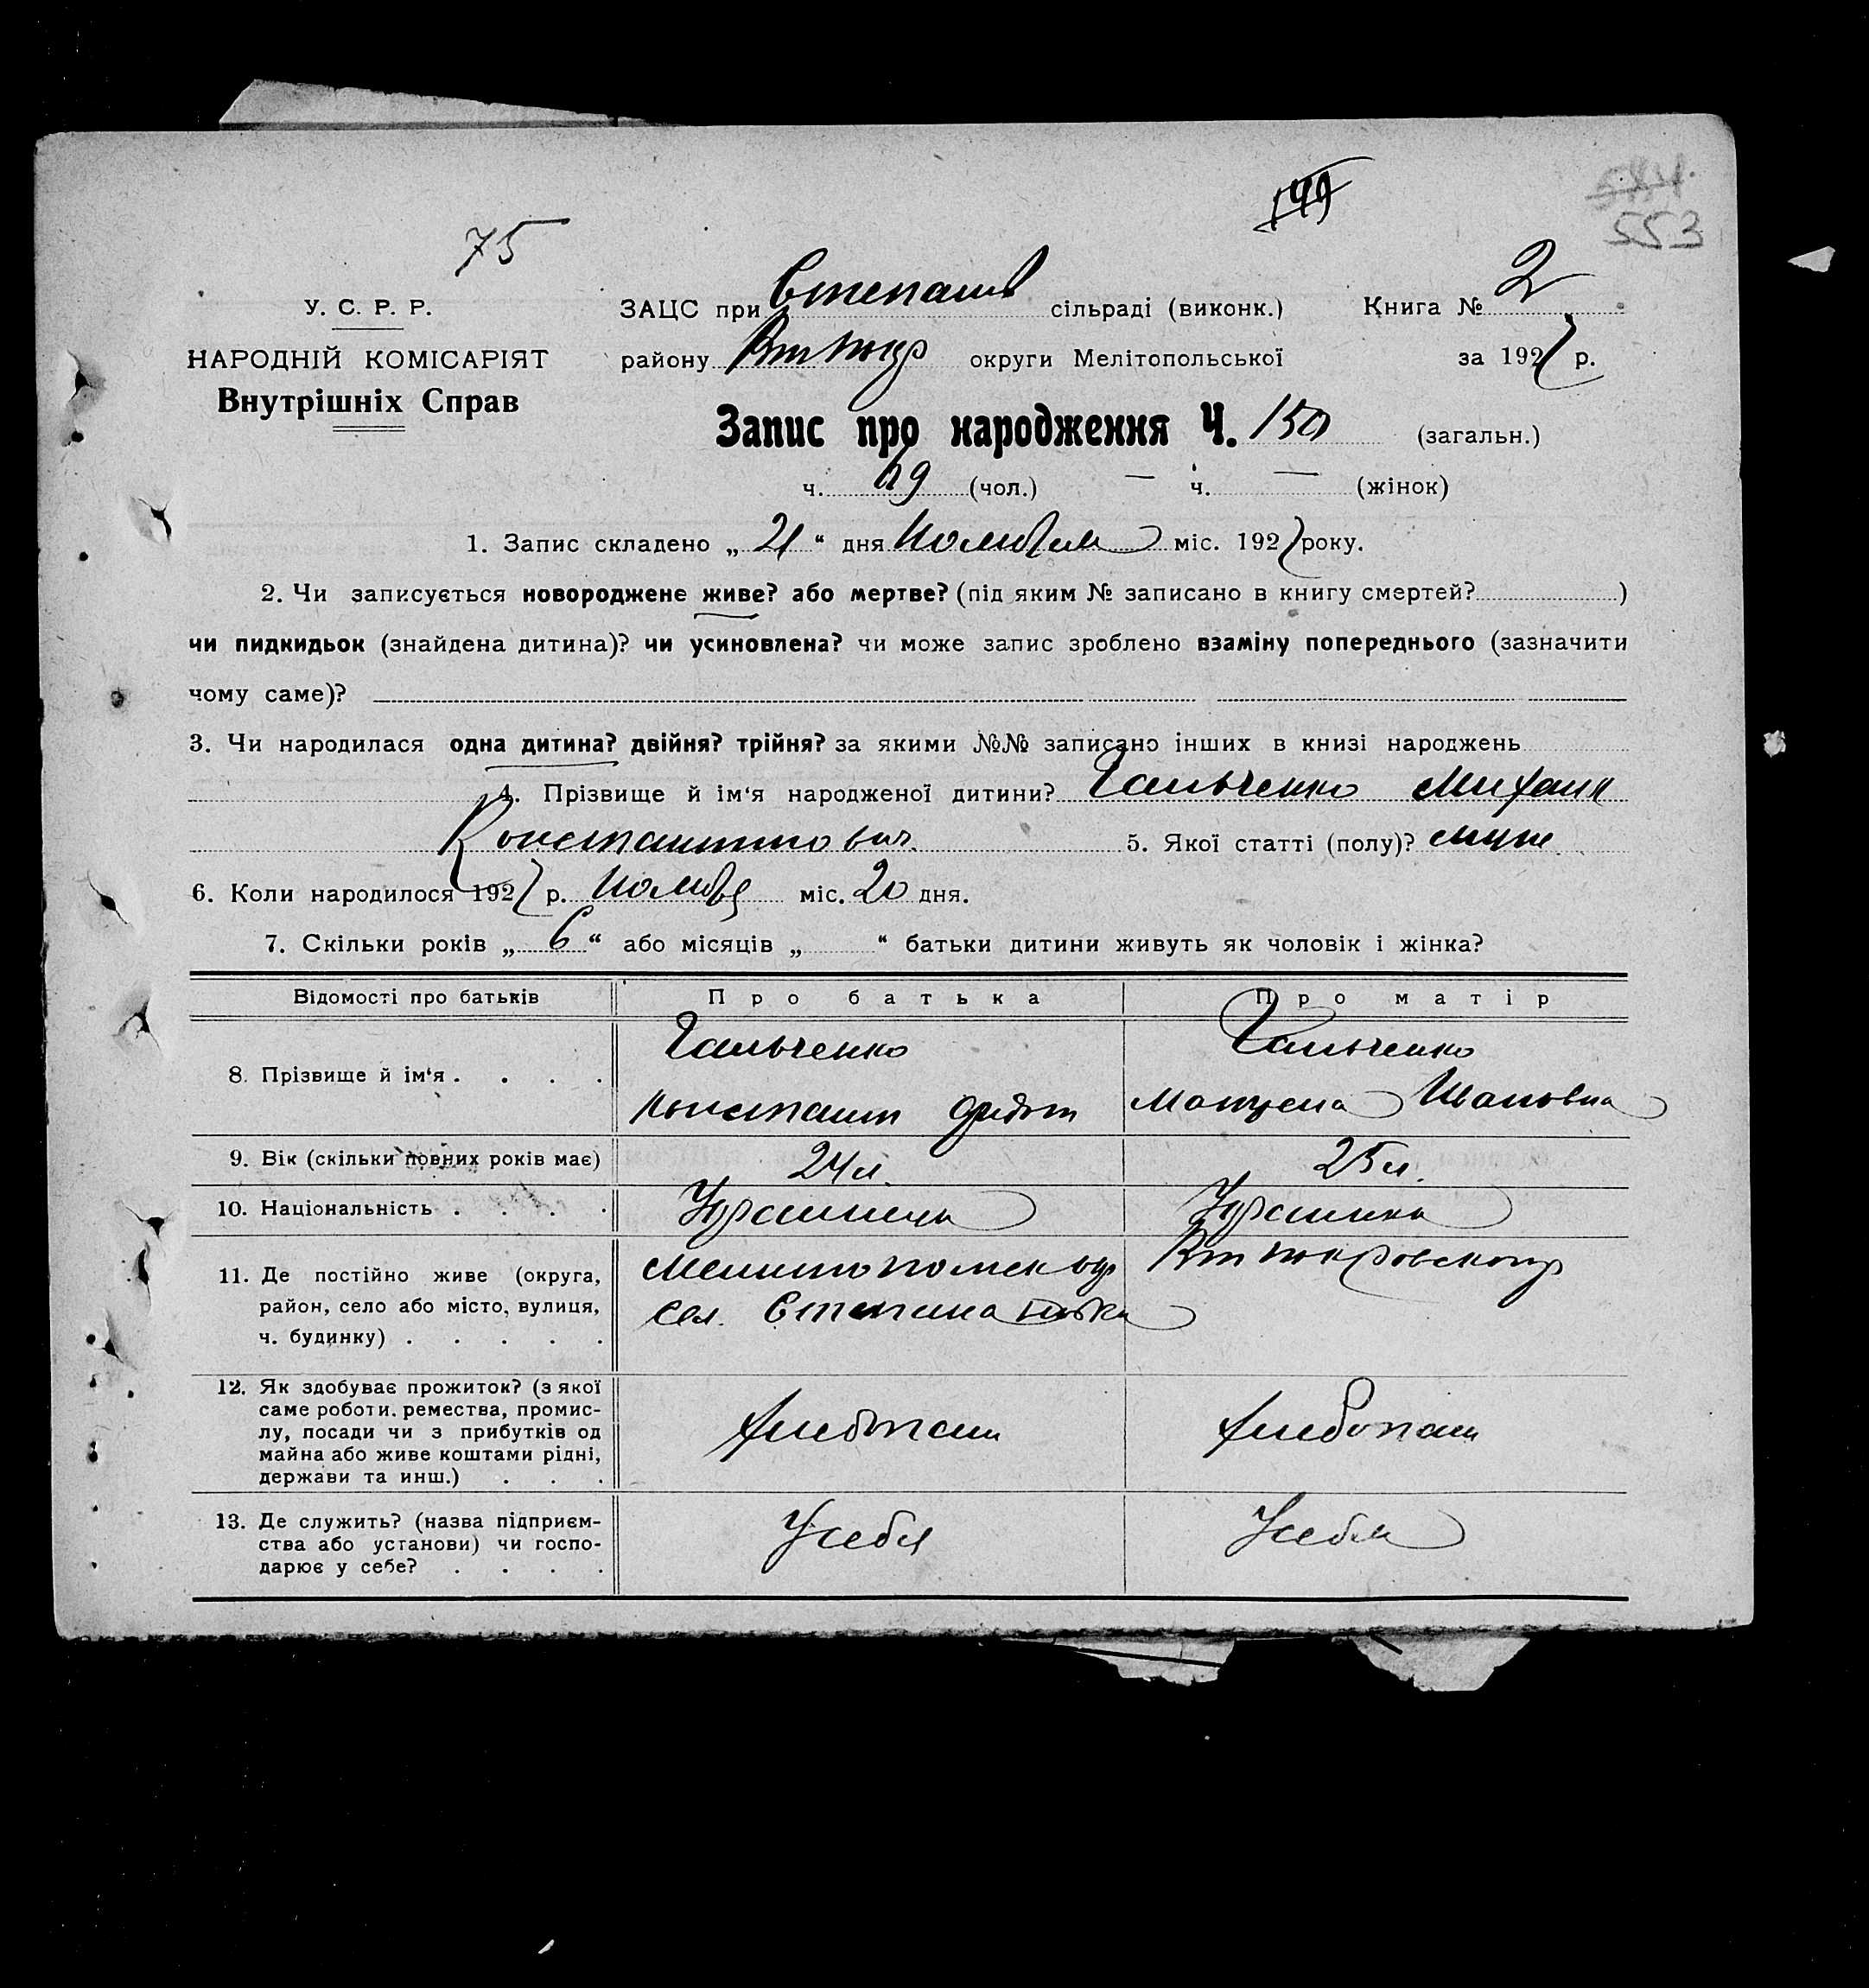 149
544.
553
75
У. С. Р. Р.
НАРОДНІЙ КОМІСАРІЯТ
Внутрішніх Справ
ЗАЦС при Степанів сільраді (виконк.) Книга № 2
району округи Мелітопольської за 1927 р.
Запис про народження Ч. 150 (загальн.)
ч. 69 (чол.) — ч. — (жінок)
1. Запис складено „ 21 “ дня міс. 1927 року.
2. Чи записується новороджене живе? або мертве? (під яким № записано в книгу смертей? )
чи пидкидьок (знайдена дитина)? чи усиновлена? чи може запис зроблено взаміну попереднього (зазначити
чому саме)?
3. Чи народилася одна дитина? двійня? трійня? за якими №№ записано інших в книзі народжень
4. Прізвище й ім‘я народженої дитини? Гальченко Михаил
Константинович. 5. Якої статті (полу)? муж.
6. Коли народилося 1927 р. міс. 20 дня.
7. Скільки років „ 6 “ або місяців „ “ батьки дитини живуть як чоловік і жінка?
Відомості про батьків Про батька Про матір
8. Прізвище й ім‘я . . . . Гальченко Гальченко
Констант Ивановна
9. Вік (скільки повних років має) 24 л. 25 л.
10. Національність . . . .
11. Де постійно живе (округа,
район, село або місто, вулиця,
ч. будинку) . . . . .
сел.
12. Як здобуває прожиток? (з якої
саме роботи. ремества, промис-
лу, посади чи з прибутків од
майна або живе коштами рідні,
держави та инш.) . . .
хлебопаш хлебопаш
13. Де служить? (назва підприєм-
ства або установи) чи госпо-
дарює у себе? . . . .
У себя У себя